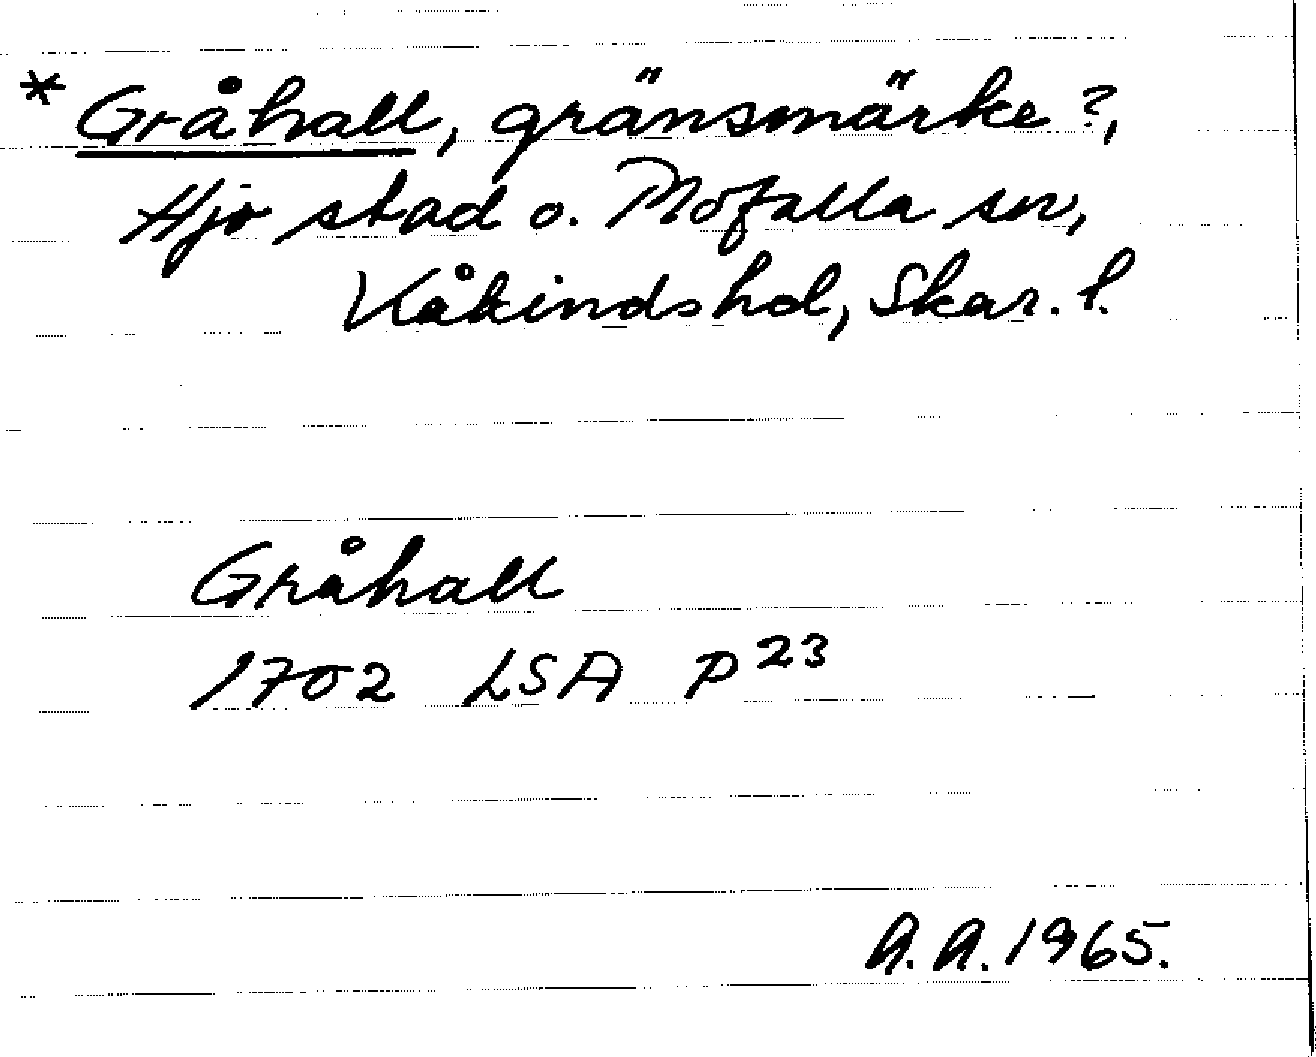 * Gråhall, gränsmärke?,
Hjo stad o. Mofalla sn,
Kåkindshd, Skar. l.
Gråhall
1702 LSA P 23
A.A. 1965.